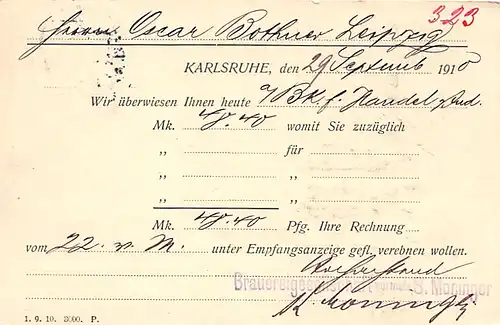 323
Herrn Oscar Bothner Leipzig
KARLSRUHE, den 29 Septemb 1910
Wir überwiesen Ihnen heute a/ Bk. f. Handel & Ind.
Mk. 48.40 womit Sie zuzüglich
„ „ für
„ „
„ „
Mk. 48.40 Pfg. Ihre Rechnung
vom 22. v. M. unter Empfangsanzeige gefl. verebnen wollen.
Hochachtend
Brauereigesellschaft vormals S. Moninger
S. Moninger
1. 9. 10. 3000. P.